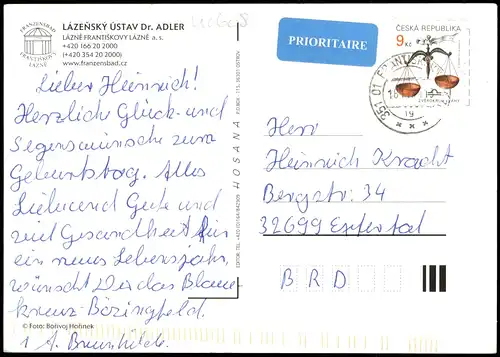 FRANZENSBAD
FRANTIŠKOVY LÁZNĚ
LÁZEŇSKÝ ÚSTAV Dr. ADLER
LÁZNĚ FRANTIŠKOVY LÁZNĚ a. s.
+420 166 20 2000
(+420 354 20 2000)
www.franzensbad.cz
Lieber Heinrich!
Herzliche Glück- und
Segenswünsche zum
Geburtstag. Alles
Liebe und Gute und
viel Gesundheit für
ein neues Lebensjahr,
wünscht Dir das Blaue-
kreuz-Bözingfeld.
© Foto: Bořivoj Hořínek
i A. Brunhilde.
HOSANA
PRIORITAIRE
ČESKÁ REPUBLIKA
9 Kč
351 01 FRANTIŠKOVY
Herr
Heinrich Kracht
Bergstr. 34
32699 Extertal
B R D